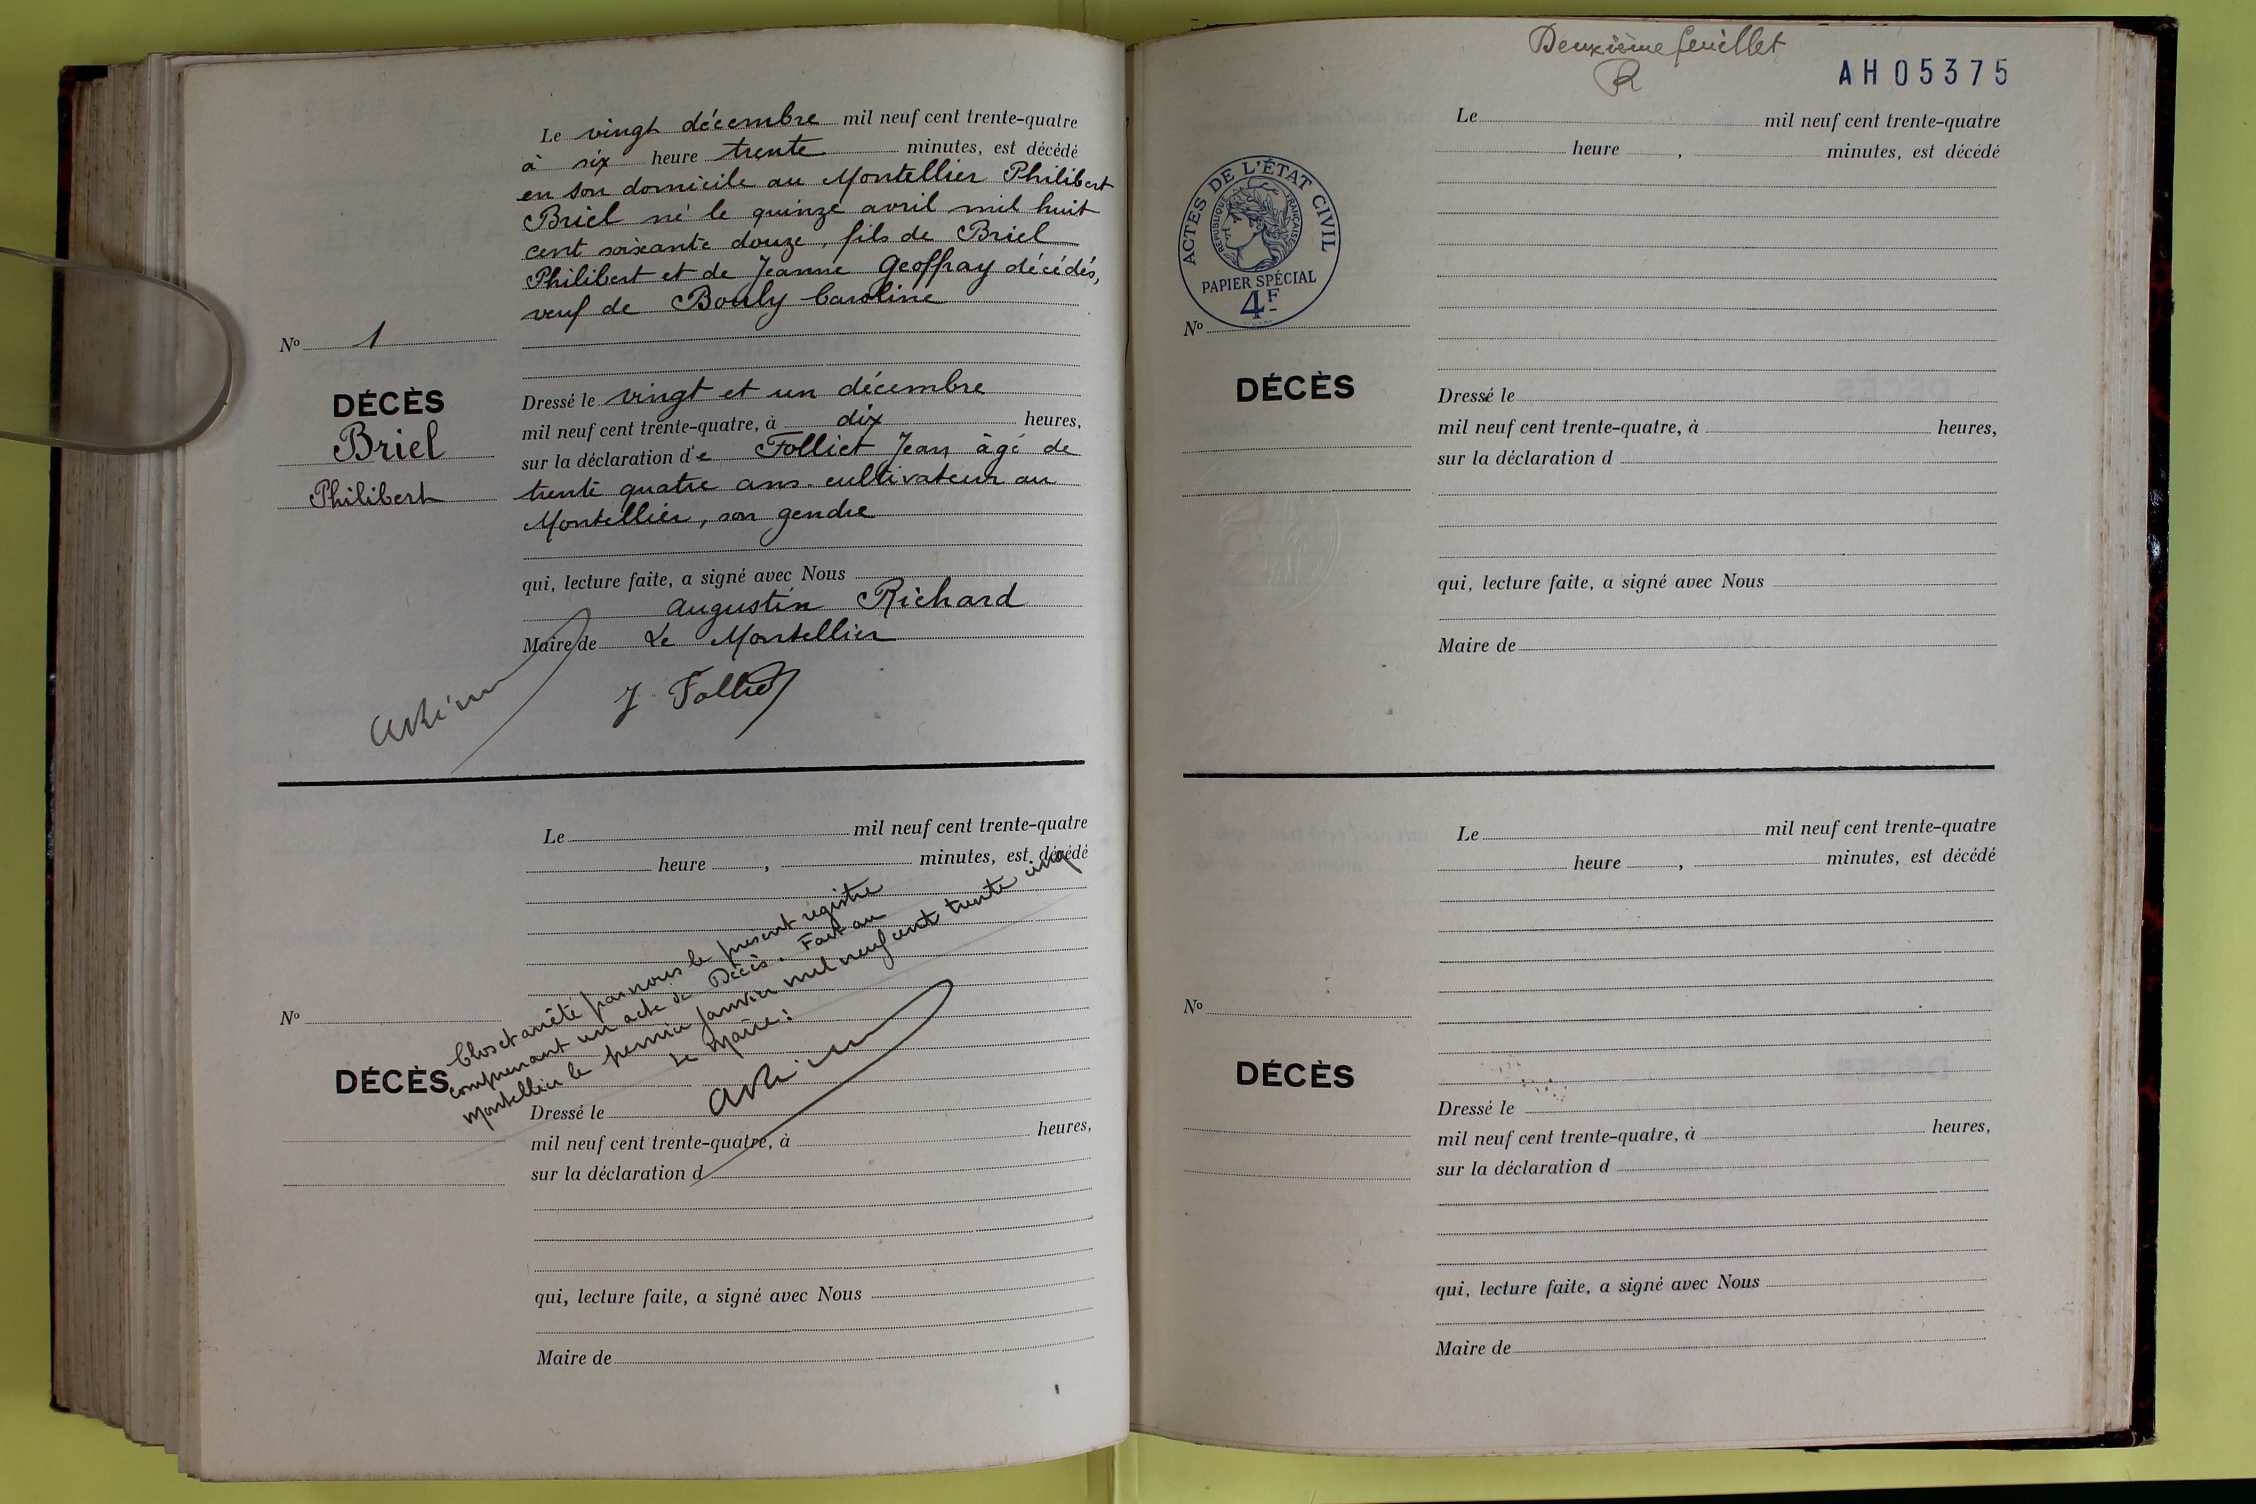 Le vingt décembre mil neuf cent trente-quatre
à six heure trente minutes, est décédé
en son domicile au Montellier Philibert
Briel né le quinze avril mil huit
cent soixante douze, fils de Briel
Philibert et de Jeanne Geoffray décédés,
veuf de Bouly Caroline
No 1
DÉCÈS
Briel
Philibert
Dressé le vingt et un décembre
mil neuf cent trente-quatre, à dix heures,
sur la déclaration d'e Folliet Jean âgé de
trente quatre ans cultivateur au
Montellier, son gendre
qui, lecture faite, a signé avec Nous
Augustin Richard
Maire de Le Montellier
J. Folliet
Le mil neuf cent trente-quatre
heure , minutes, est décédé
Clos et arrêté par nous le présent registre
comprenant un acte de Décès. Fait au
Montellier le premier janvier mil neuf cent trente cinq
Le Maire:
No
DÉCÈS
Dressé le
mil neuf cent trente-quatre, à heures,
sur la déclaration d
qui, lecture faite, a signé avec Nous
Maire de
Deuxième feuillet
R
AH05375
Le mil neuf cent trente-quatre
heure , minutes, est décédé
ACTES DE L'ÉTAT CIVIL
RÉPUBLIQUE FRANÇAISE
PAPIER SPÉCIAL
4F
No
DÉCÈS
Dressé le
mil neuf cent trente-quatre, à heures,
sur la déclaration d
qui, lecture faite, a signé avec Nous
Maire de
Le mil neuf cent trente-quatre
heure , minutes, est décédé
No
DÉCÈS
Dressé le
mil neuf cent trente-quatre, à heures,
sur la déclaration d
qui, lecture faite, a signé avec Nous
Maire de